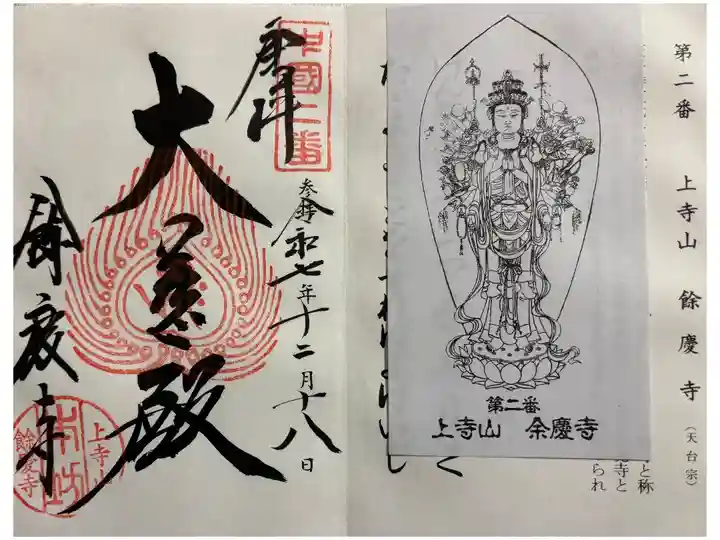 第二番　上寺山　餘慶寺（天台宗）
と称
寺と
られ
第二番
上寺山　余慶寺
中國二番
奉拝
参拝
令和七年十二月十八日
大悲殿
餘慶寺
上寺山
本坊
餘慶寺